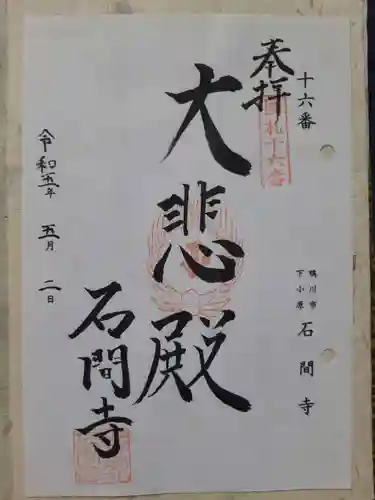 十六番
奉拝
札十六番
大悲殿
鴨川市
下小原
石間寺
石間寺
令和五年 五月 二日